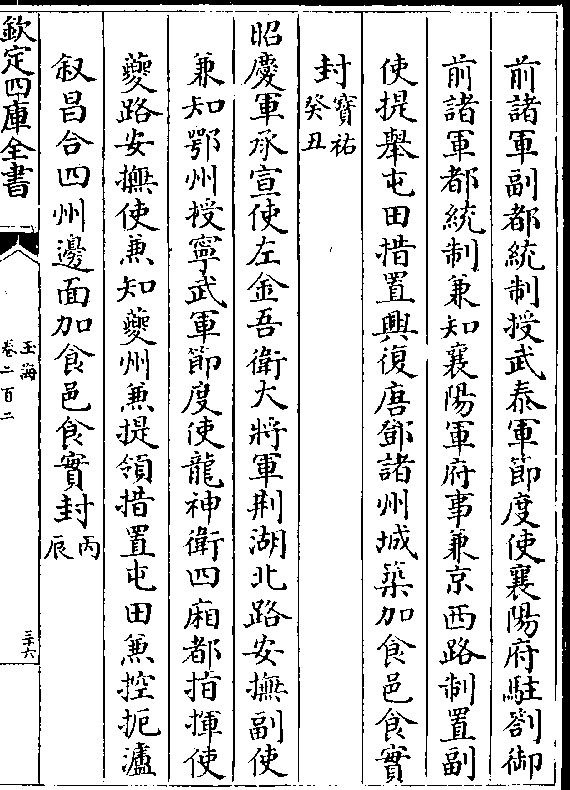 前諸軍副都統制授武泰軍節度使襄陽府駐劄御
前諸軍都統制兼知襄陽軍府事兼京西路制置副
使提舉屯田措置興復唐鄧諸州城築加食邑食實
封寳祐癸丑
昭慶軍承宣使左金吾衛大將軍荆湖北路安撫副使
兼知鄂州授寧武軍節度使龍神衛四廂都指揮使
夔路安撫使兼知夔州兼提領措置屯田兼控扼瀘
叙昌合四州邊面加食邑食實封丙辰
欽定四庫全書
玉海
卷二百二
三十六